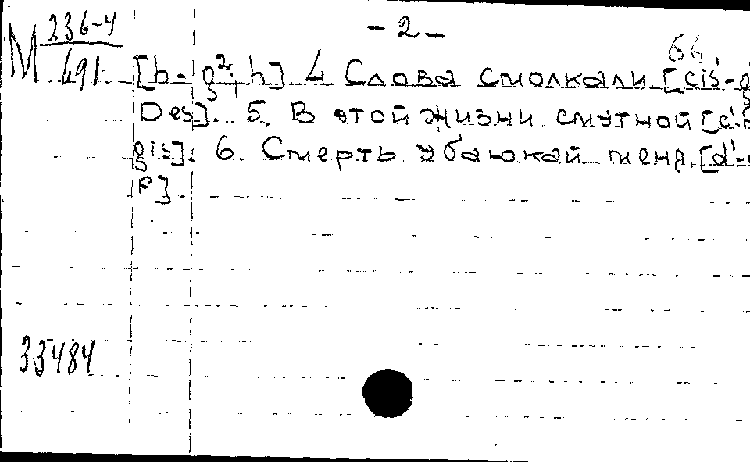 - 2 -
М 236-4
491
66
[b - g²; h] 4 Слова смолкали [cis' - g
Des]. 5. В этой жизни смутной [cis
gis]. 6. Смерть, убаюкай меня. [d' -
F].
33484